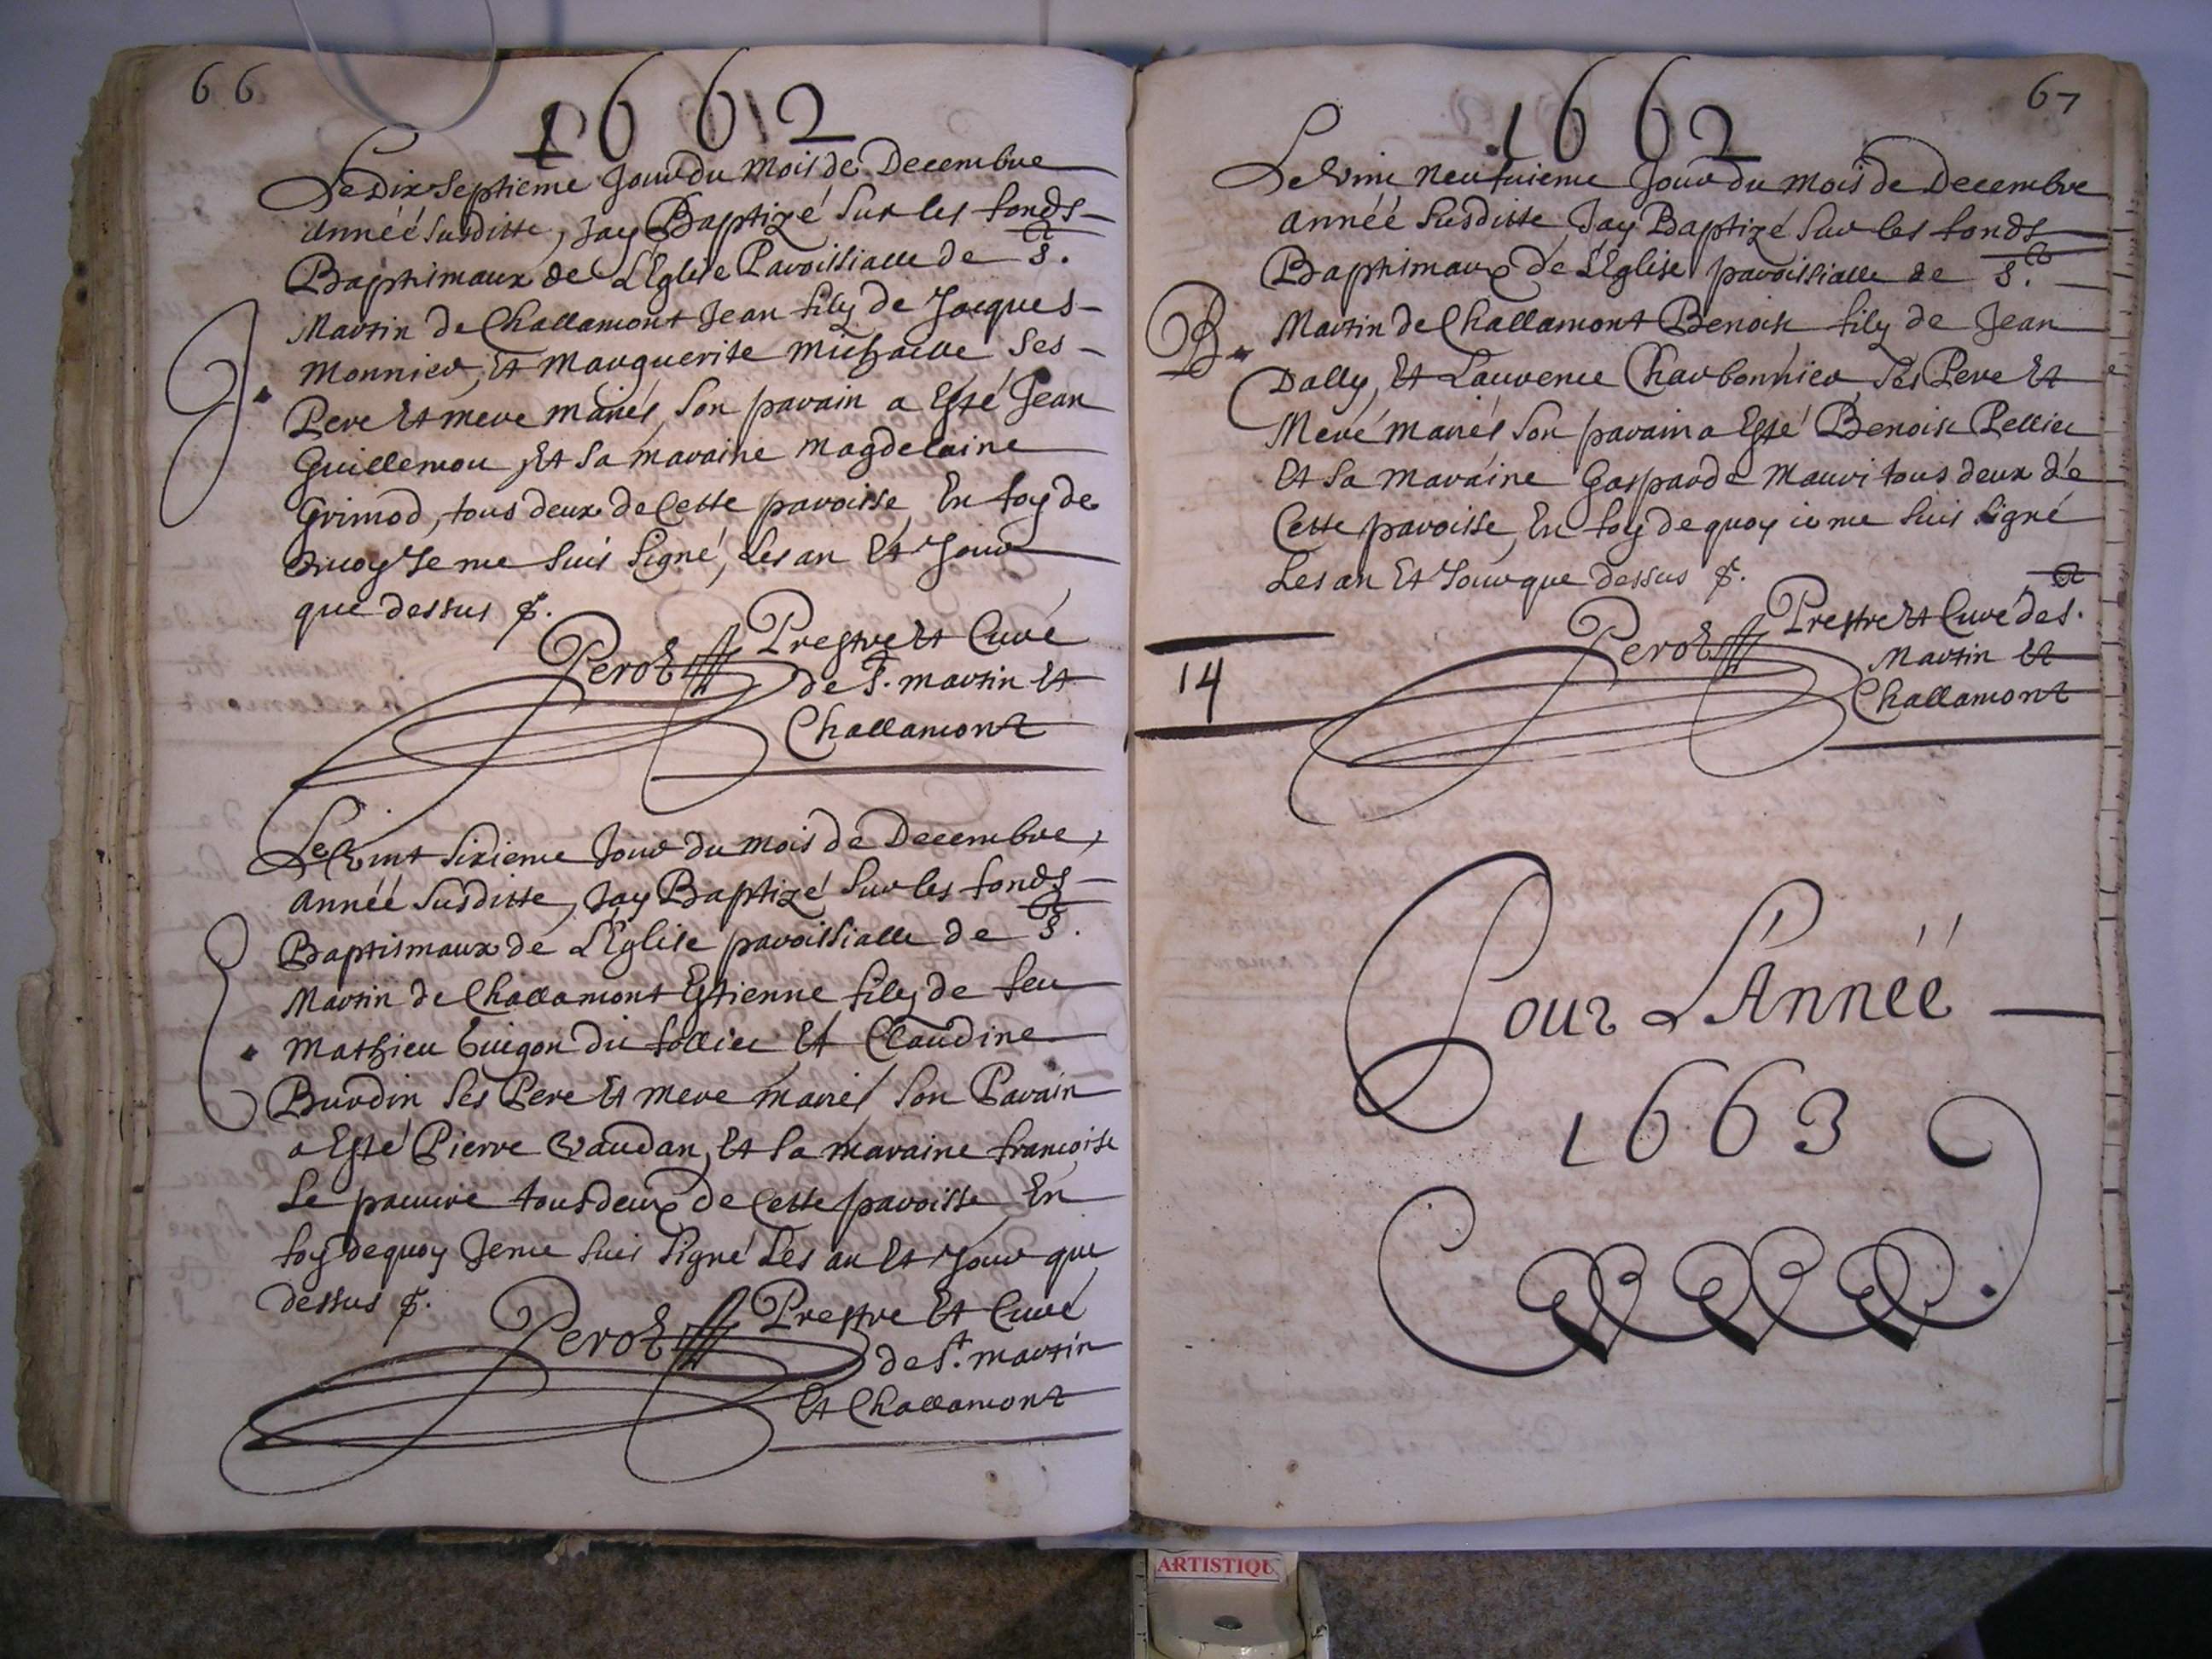 66
1662
Le Dix Septieme Jour du mois de Decembre
Année Susditte, Jay Baptizé Sur les fonds
Baptismaux de L'Eglise Paroissialle de St.
Martin de Challamont Jean fils de Jacques
Monnier, Et Marguerite Michaille Ses
Pere Et mere mariés Son parain a Esté Jean
Guillemou, Et Sa maraine Magdelaine
Grimod, tous deux de Cette paroisse, En foy de
Quoy Je me Suis Signé, Les an Et Jour
que dessus &.
Perot Prestre Et Curé
de St. martin Et
Challamont
Le Vint Sixieme Jour du mois de Decembre,
Année Susditte, Jay Baptizé Sur les fonds
Baptismaux de L'Eglise paroissialle de St.
Martin de Challamont Estienne fils de feu
Mathieu Guigon du follier Et Claudine
Burdin Ses Pere Et mere mariés Son Parain
a Esté Pierre Vaudan, Et Sa maraine francoise
Le pauvre tous deux de Cette paroisse En
foy de quoy Je me Suis Signé Les an Et Jour que
dessus &.
Perot Prestre Et Curé
de St. martin
Et Challamont
67
1662
Le Vint Neufuieme Jour du mois de Decembre
Année Susditte Jay Baptizé Sur les fonds
Baptismaux de L'Eglise paroissialle de St.
B. Martin de Challamont Benoist fils de Jean
Dally, Et Laurence Charbonnier Ses Pere Et
Mere mariés Son parain a Esté Benoist Pellier
Et Sa maraine Gasparde Mauri tous deux de
Cette paroisse, En foy de quoy ie me Suis Signé
Les an Et Jour que dessus &.
Perot Prestre Et Curé de St.
Martin Et
Challamont
14
Pour L'Année
1663
ARTISTIQU